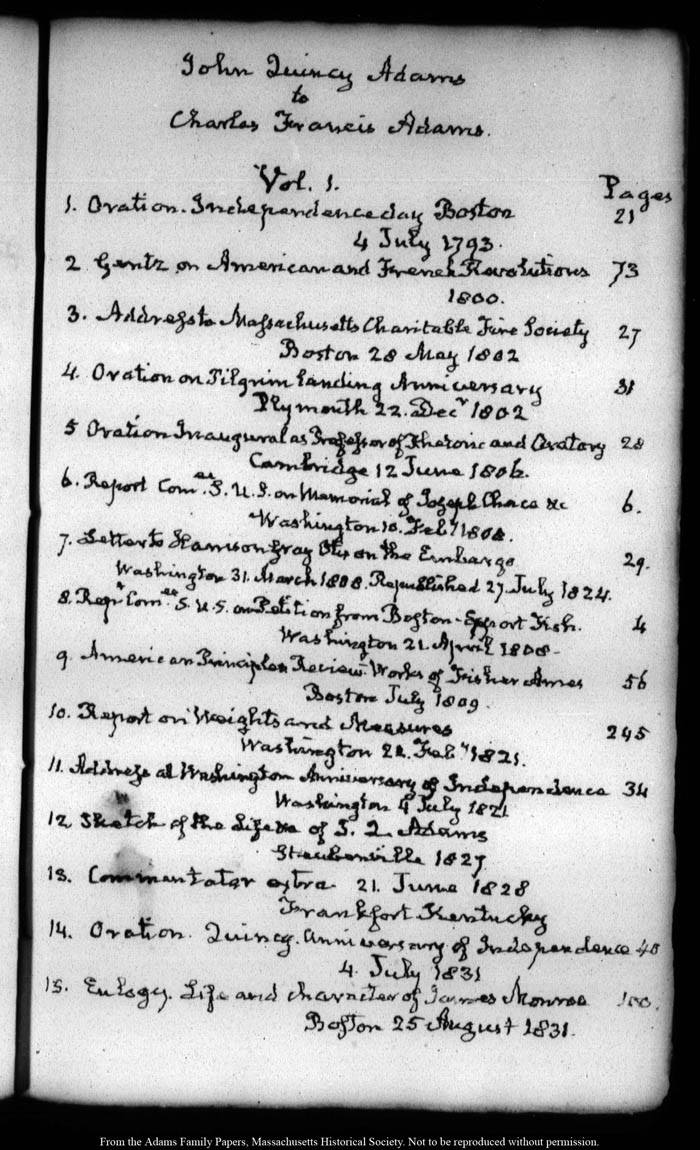 John Quincy Adams
to
Charles Francis Adams.
Vol. 1. Pages
1. Oration. Independence day Boston 21
4 July 1793.
2 Gentz on American and French Revolutions 73
1800.
3. Address to Massachusetts Charitable Fire Society 27
Boston 28 May 1802
4. Oration on Pilgrim landing Anniversary 31
Plymouth 22. Decr 1802
5 Oration Inaugural as Professor of Rhetoric and Oratory 28
Cambridge 12 June 1806.
6. Report Comee. S. U. S. on Memorial of Joseph Chace &c 6.
Washington 10. Feby 1808.
7. Letter to Harrison Gray Otis on the Embargo 29.
Washington 31. March 1808. Republished 27. July 1824.
8. Repr Comee S. U. S. on Petition from Boston - Export Fish. 4
Washington 21. April 1808.
9. American Principles Review. Works of Fisher Ames 56
Boston July 1809.
10. Report on Weights and Measures 245
Washington 22. Feby 1821.
11. Address at Washington Anniversary of Independence 34
Washington 4 July 1821
12 Sketch of the Life &c of J. Q. Adams
Steubenville 1827.
13. Commentator extra 21. June 1828
Frankfort Kentucky
14. Oration. Quincy. Anniversary of Independence 40
4. July 1831
15. Eulogy. Life and character of James Monroe 100.
Boston 25 August 1831.
From the Adams Family Papers, Massachusetts Historical Society. Not to be reproduced without permission.